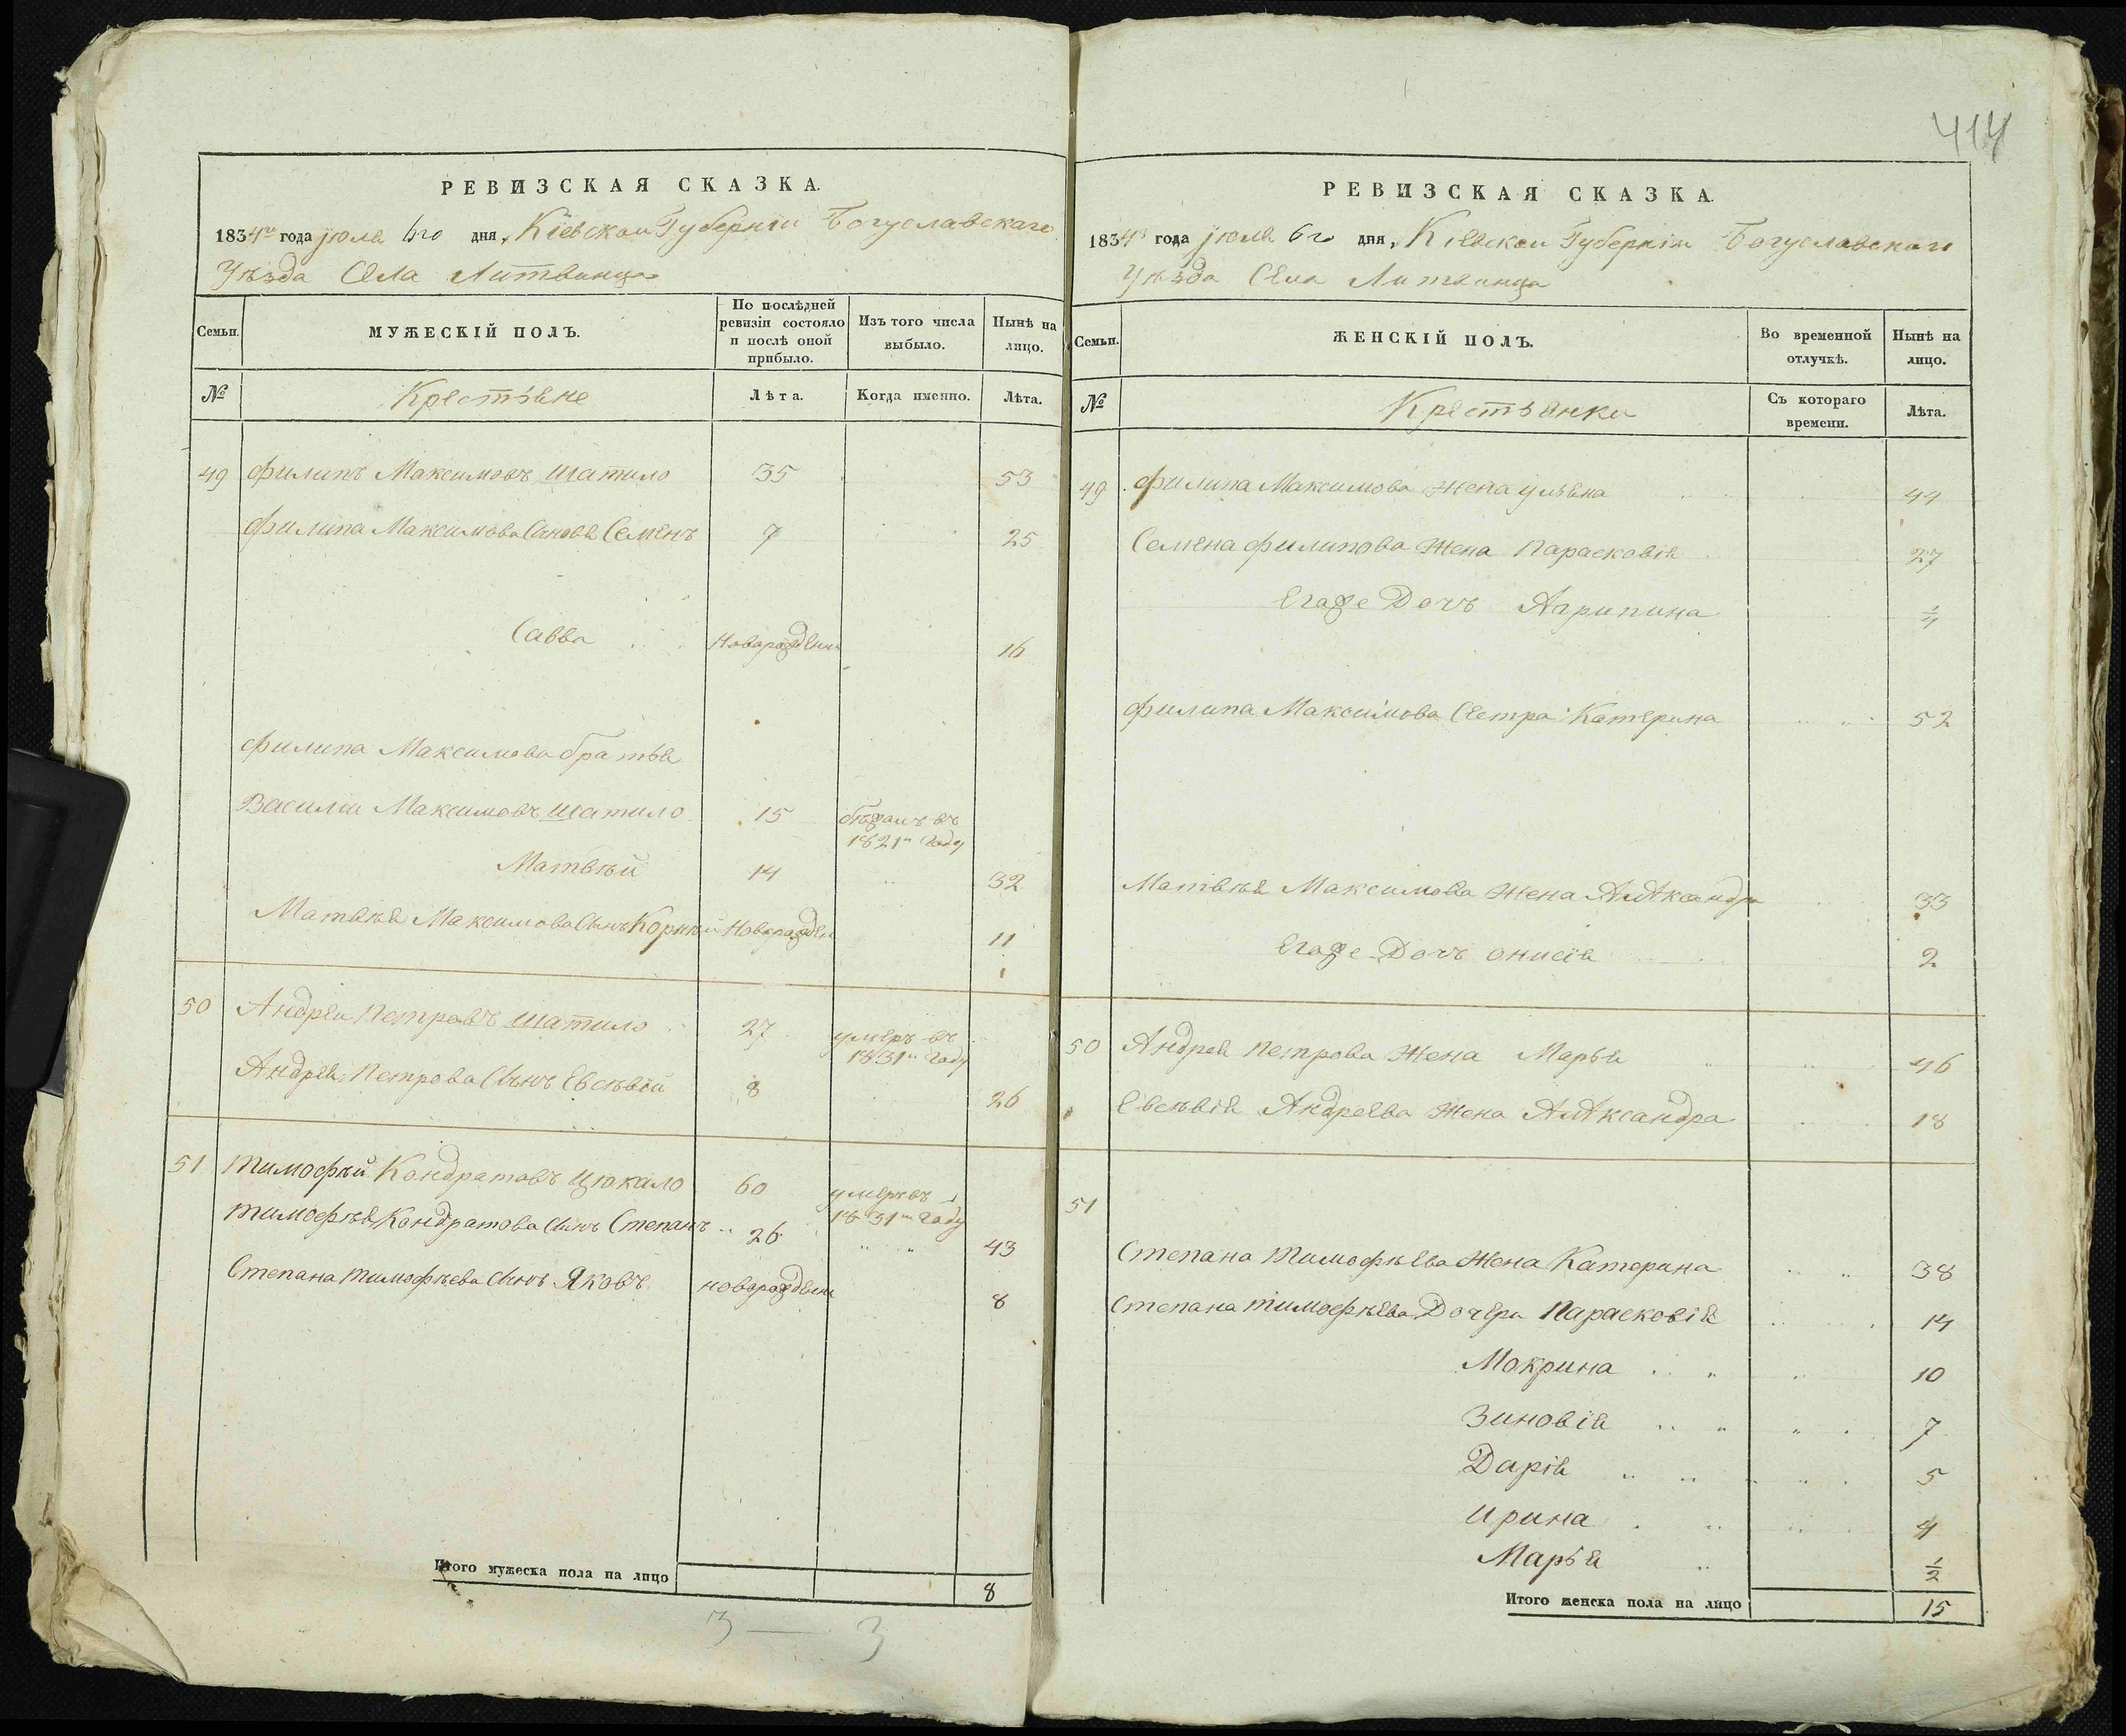 414
РЕВИЗСКАЯ СКАЗКА.
1834го года июля 6го дня, Кіевской Губерніи Богуславскаго
Уѣзда Села Литвинца
Семьи. МУЖЕСКІЙ ПОЛЪ. По послѣдней ревизіи состояло и послѣ оной прибыло. Изъ того числа выбыло. Нынѣ на лицо.
№ Крестьяне Лѣта. Когда именно. Лѣта.
49 Филипъ Максимовъ Шатило 35 53
Филипа Максимова Сыновя Семенъ 7 25
Савва Новорожденъ 16
Филипа Максимова братья
Василій Максимовъ Шатило 15 бѣжалъ въ
1821м году
Матвѣй 14 32
Матвѣя Максимова Сынъ Корнѣй Новорожден 11
50 Андрей Петровъ Шатило 27 умеръ въ
1831м году
Андрея Петрова Сынъ Евсѣвій 8 26
51 Тимофѣй Кондратовъ Цюкало 60 умеръ въ
1831м году
Тимофѣя Кондратова Сынъ Степанъ 26 43
Степана Тимофѣева Сынъ Яковъ новорожденъ 8
Итого мужеска пола на лицо 8
3 — 3
РЕВИЗСКАЯ СКАЗКА.
1834го года июля 6го дня, Кіевской Губерніи Богуславскаго
Уѣзда Села Литвинца
Семьи. ЖЕНСКІЙ ПОЛЪ. Во временной отлучкѣ. Нынѣ на лицо.
№ Крестьянки Съ котораго времени. Лѣта.
49 Филипа Максимова Жена Ульяна 44
Семена Филипова Жена Парасковія 27
Егоже Дочъ Агрипина
Филипа Максимова Сестра Катерина 52
Матвѣя Максимова Жена Алѣксандра 33
Егоже Дочъ Онисія 2
50 Андрея Петрова Жена Марья 46
Евсѣвія Андреева Жена Алѣксандра 18
51
Степана Тимофѣева Жена Катерина 38
Степана Тимофѣева Дочери Парасковія 14
Мокрина 10
Зиновія 7
Дарія 5
Ирина 4
Марья 1/2
Итого женска пола на лицо 15